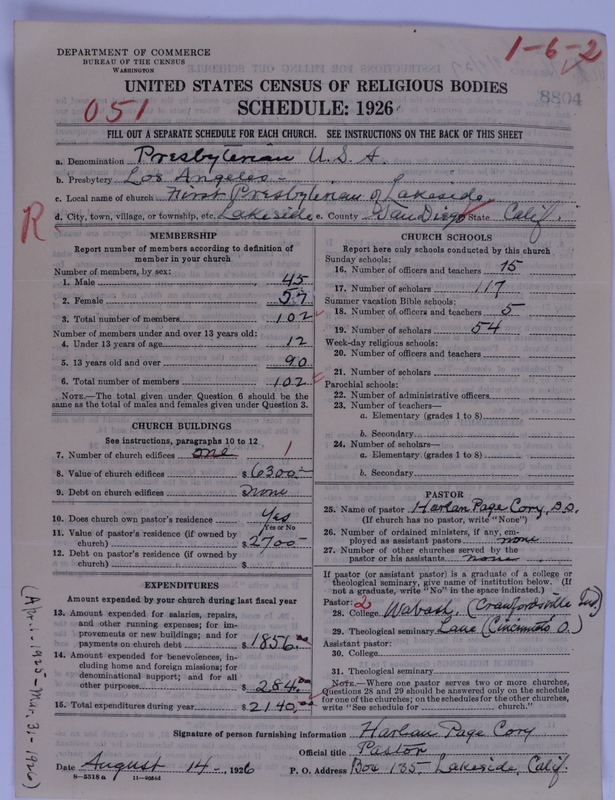 DEPARTMENT OF COMMERCE
BUREAU OF THE CENSUS
WASHINGTON
1-6-2
8804
UNITED STATES CENSUS OF RELIGIOUS BODIES
051
SCHEDULE: 1926
FILL OUT A SEPARATE SCHEDULE FOR EACH CHURCH. SEE INSTRUCTIONS ON THE BACK OF THIS SHEET
a. Denomination Presbyterian U.S.A.
b. Presbytery Los Angeles
c. Local name of church First Presbyterian of Lakeside
R
d. City, town, village, or township, etc. Lakeside e. County San Diego State Calif.
MEMBERSHIP
Report number of members according to definition of
member in your church
Number of members, by sex:
1. Male 45
2. Female 57
3. Total number of members 102
Number of members under and over 13 years old:
4. Under 13 years of age 12
5. 13 years old and over 90
6. Total number of members 102
NOTE.—The total given under Question 6 should be the
same as the total of males and females given under Question 3.
CHURCH BUILDINGS
See instructions, paragraphs 10 to 12
7. Number of church edifices one 1
8. Value of church edifices $ 6300.-
9. Debt on church edifices none
10. Does church own pastor's residence Yes
Yes or No
11. Value of pastor's residence (if owned by
church) $ 2700-
12. Debt on pastor's residence (if owned by
church) $
EXPENDITURES
Amount expended by your church during last fiscal year
13. Amount expended for salaries, repairs,
and other running expenses; for im-
provements or new buildings; and for
payments on church debt $ 1856.00
14. Amount expended for benevolences, in-
cluding home and foreign missions; for
denominational support; and for all
other purposes $ 284.00
15. Total expenditures during year $ 2140.00
(Apr.1-1925-Mar.31-1926)
CHURCH SCHOOLS
Report here only schools conducted by this church
Sunday schools:
16. Number of officers and teachers 15
17. Number of scholars 117
Summer vacation Bible schools:
18. Number of officers and teachers 5
19. Number of scholars 54
Week-day religious schools:
20. Number of officers and teachers
21. Number of scholars
Parochial schools:
22. Number of administrative officers
23. Number of teachers—
a. Elementary (grades 1 to 8)
b. Secondary
24. Number of scholars—
a. Elementary (grades 1 to 8)
b. Secondary
PASTOR
25. Name of pastor Harlan Page Cory, D.D.
(If church has no pastor, write "None")
26. Number of ordained ministers, if any, em-
ployed as assistant pastors none
27. Number of other churches served by the
pastor or his assistants none
If pastor (or assistant pastor) is a graduate of a college or
theological seminary, give name of institution below. (If
not a graduate, write "No" in the space indicated.)
Pastor: 2
28. College Wabash (Crawfordsville Ind.)
29. Theological seminary Lane (Cincinnati O.)
Assistant pastor:
30. College
31. Theological seminary
NOTE.—Where one pastor serves two or more churches,
Questions 28 and 29 should be answered only on the schedule
for one of the churches; on the schedules for the other churches,
write "See schedule for church."
Signature of person furnishing information Harlan Page Cory
Official title Pastor
Date August 14-, 1926 P. O. Address Box 185- Lakeside, Calif.
8-5518a